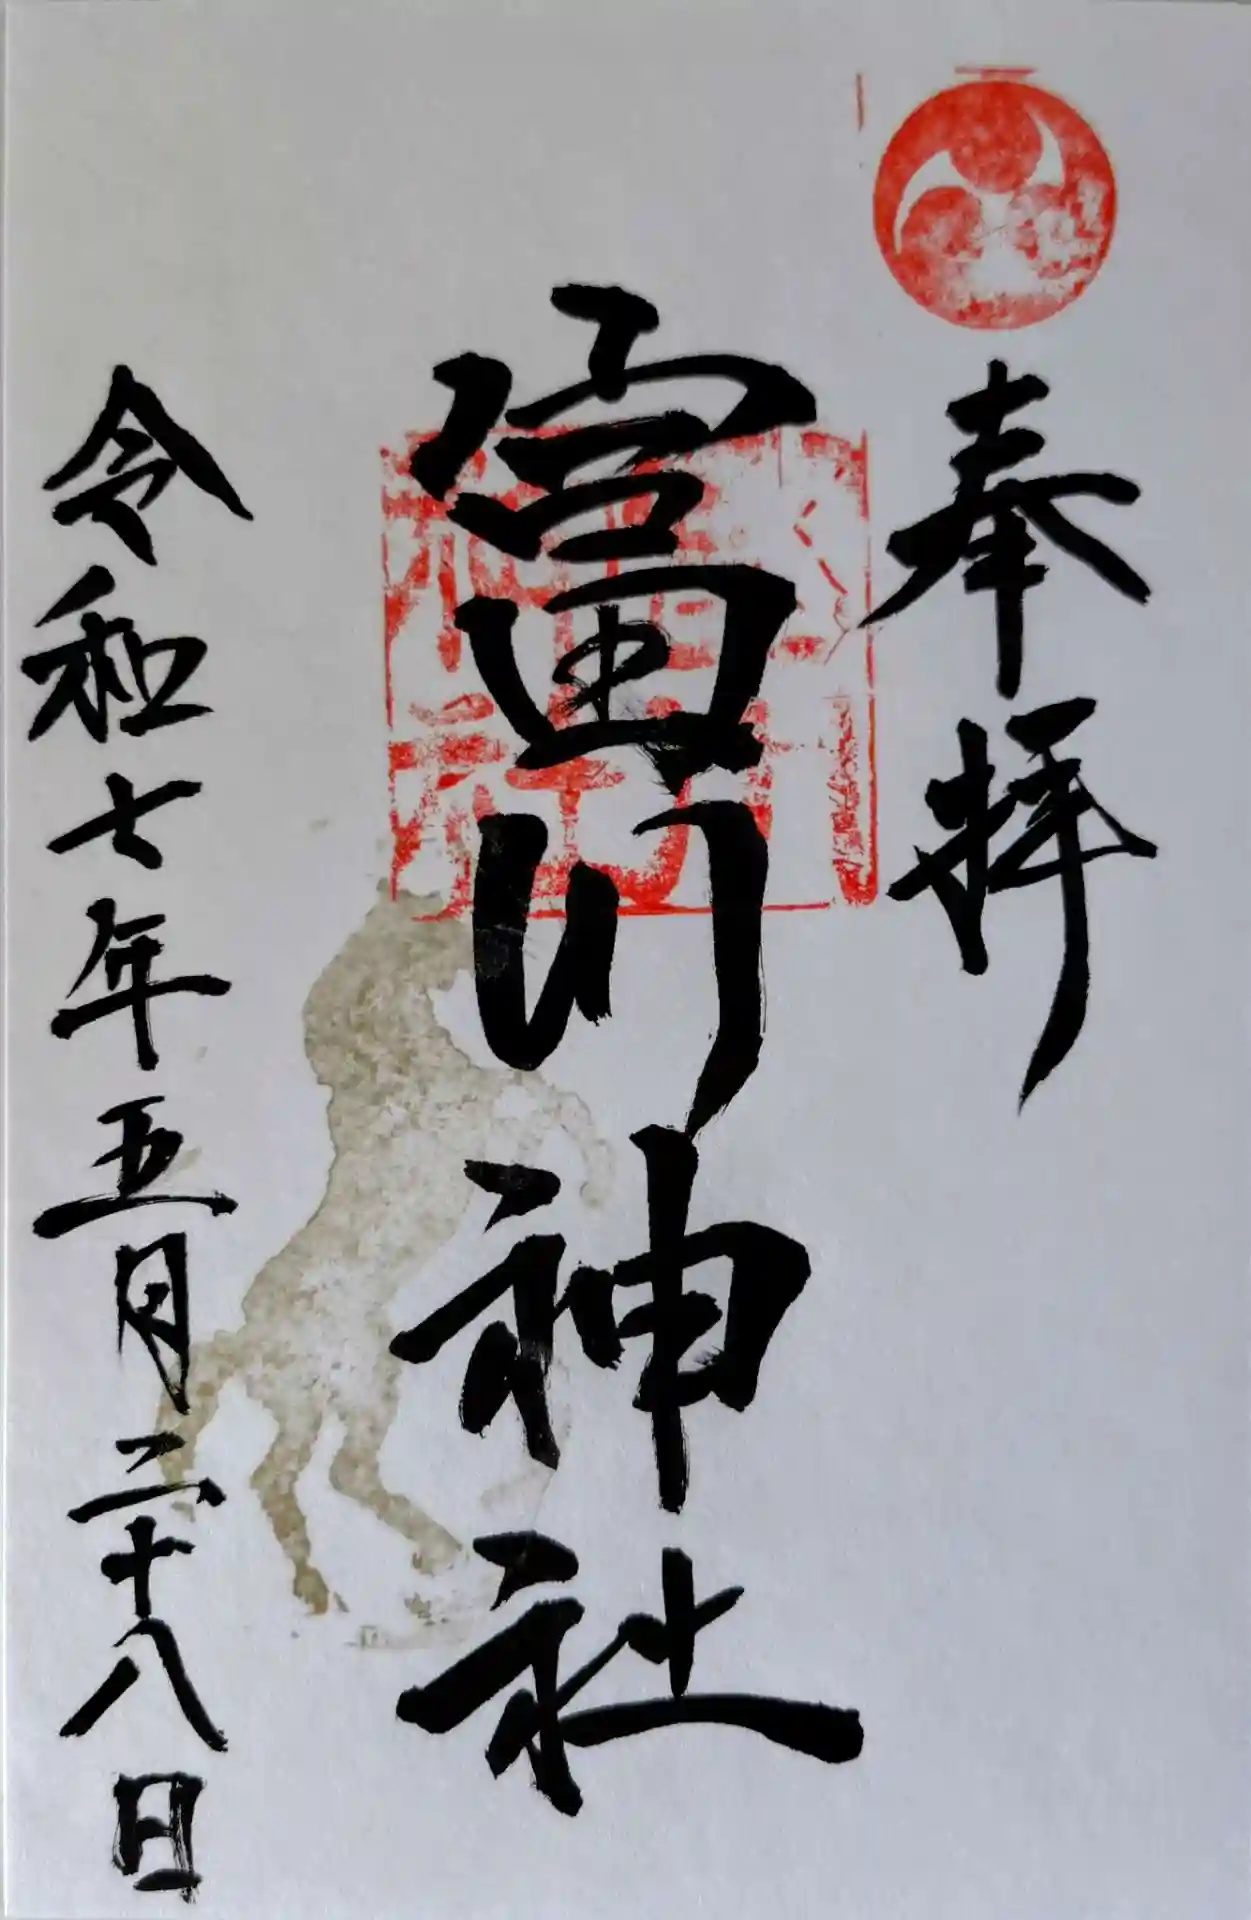 奉拝
富川神社
令和七年五月二十八日